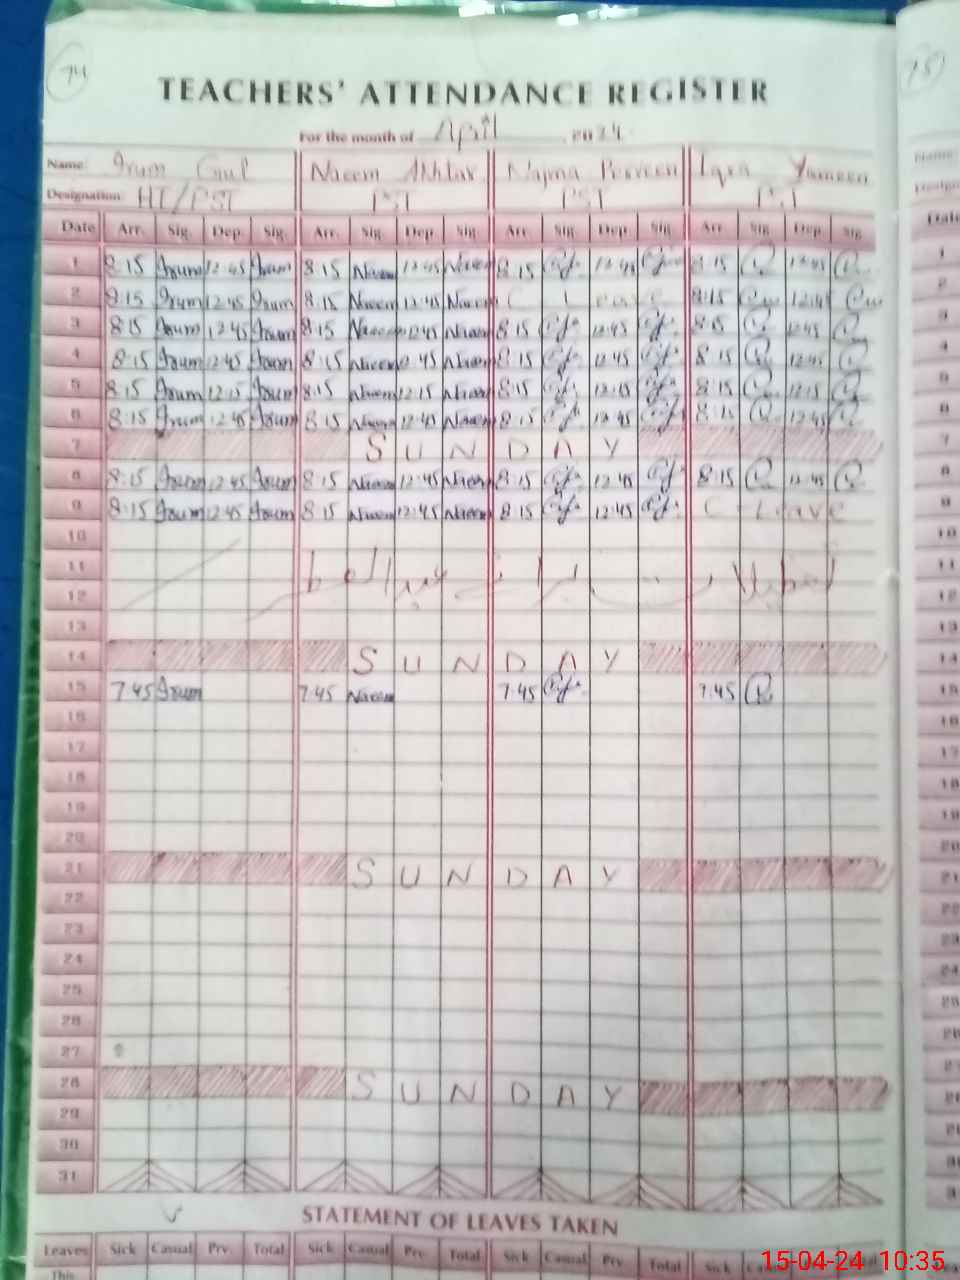 74
TEACHERS' ATTENDANCE REGISTER
For the month of April, 2024
Name: Irum Gul Naeem Akhtar Najma Perveen Iqra Yameen
Designation: HT/PST PST PST PST
Date Arr. Sig. Dep. Sig. Arr. Sig. Dep. Sig. Arr. Sig. Dep. Sig. Arr. Sig. Dep. Sig.
1 8:15 Irum 12:45 Irum 8:15 Naeem 12:45 Naeem 8:15 12:45 8:15 12:45
2 8:15 Irum 12:45 Irum 8:15 Naeem 12:45 Naeem C Leave 8:15 12:45
3 8:15 Irum 12:45 Irum 8:15 Naeem 12:45 Naeem 8:15 12:45 8:15 12:45
4 8:15 Irum 12:45 Irum 8:15 Naeem 12:45 Naeem 8:15 12:45 8:15 12:45
5 8:15 Irum 12:15 Irum 8:15 Naeem 12:15 Naeem 8:15 12:15 8:15 12:15
6 8:15 Irum 12:45 Irum 8:15 Naeem 12:45 Naeem 8:15 12:45 8:15 12:45
7 SUNDAY
8 8:15 Irum 12:45 Irum 8:15 Naeem 12:45 Naeem 8:15 12:45 8:15 12:45
9 8:15 Irum 12:45 Irum 8:15 Naeem 12:45 Naeem 8:15 12:45 C-Leave
10
11 تعطیلات برائے عید الفطر
12
13
14 SUNDAY
15 7:45 Irum 7:45 Naeem 7:45 7:45
16
17
18
19
20
21 SUNDAY
22
23
24
25
26
27
28 SUNDAY
29
30
31
STATEMENT OF LEAVES TAKEN
Leaves Sick Casual Prv. Total Sick Casual Prv. Total Sick Casual Prv. Total Sick
This
15-04-24 10:35